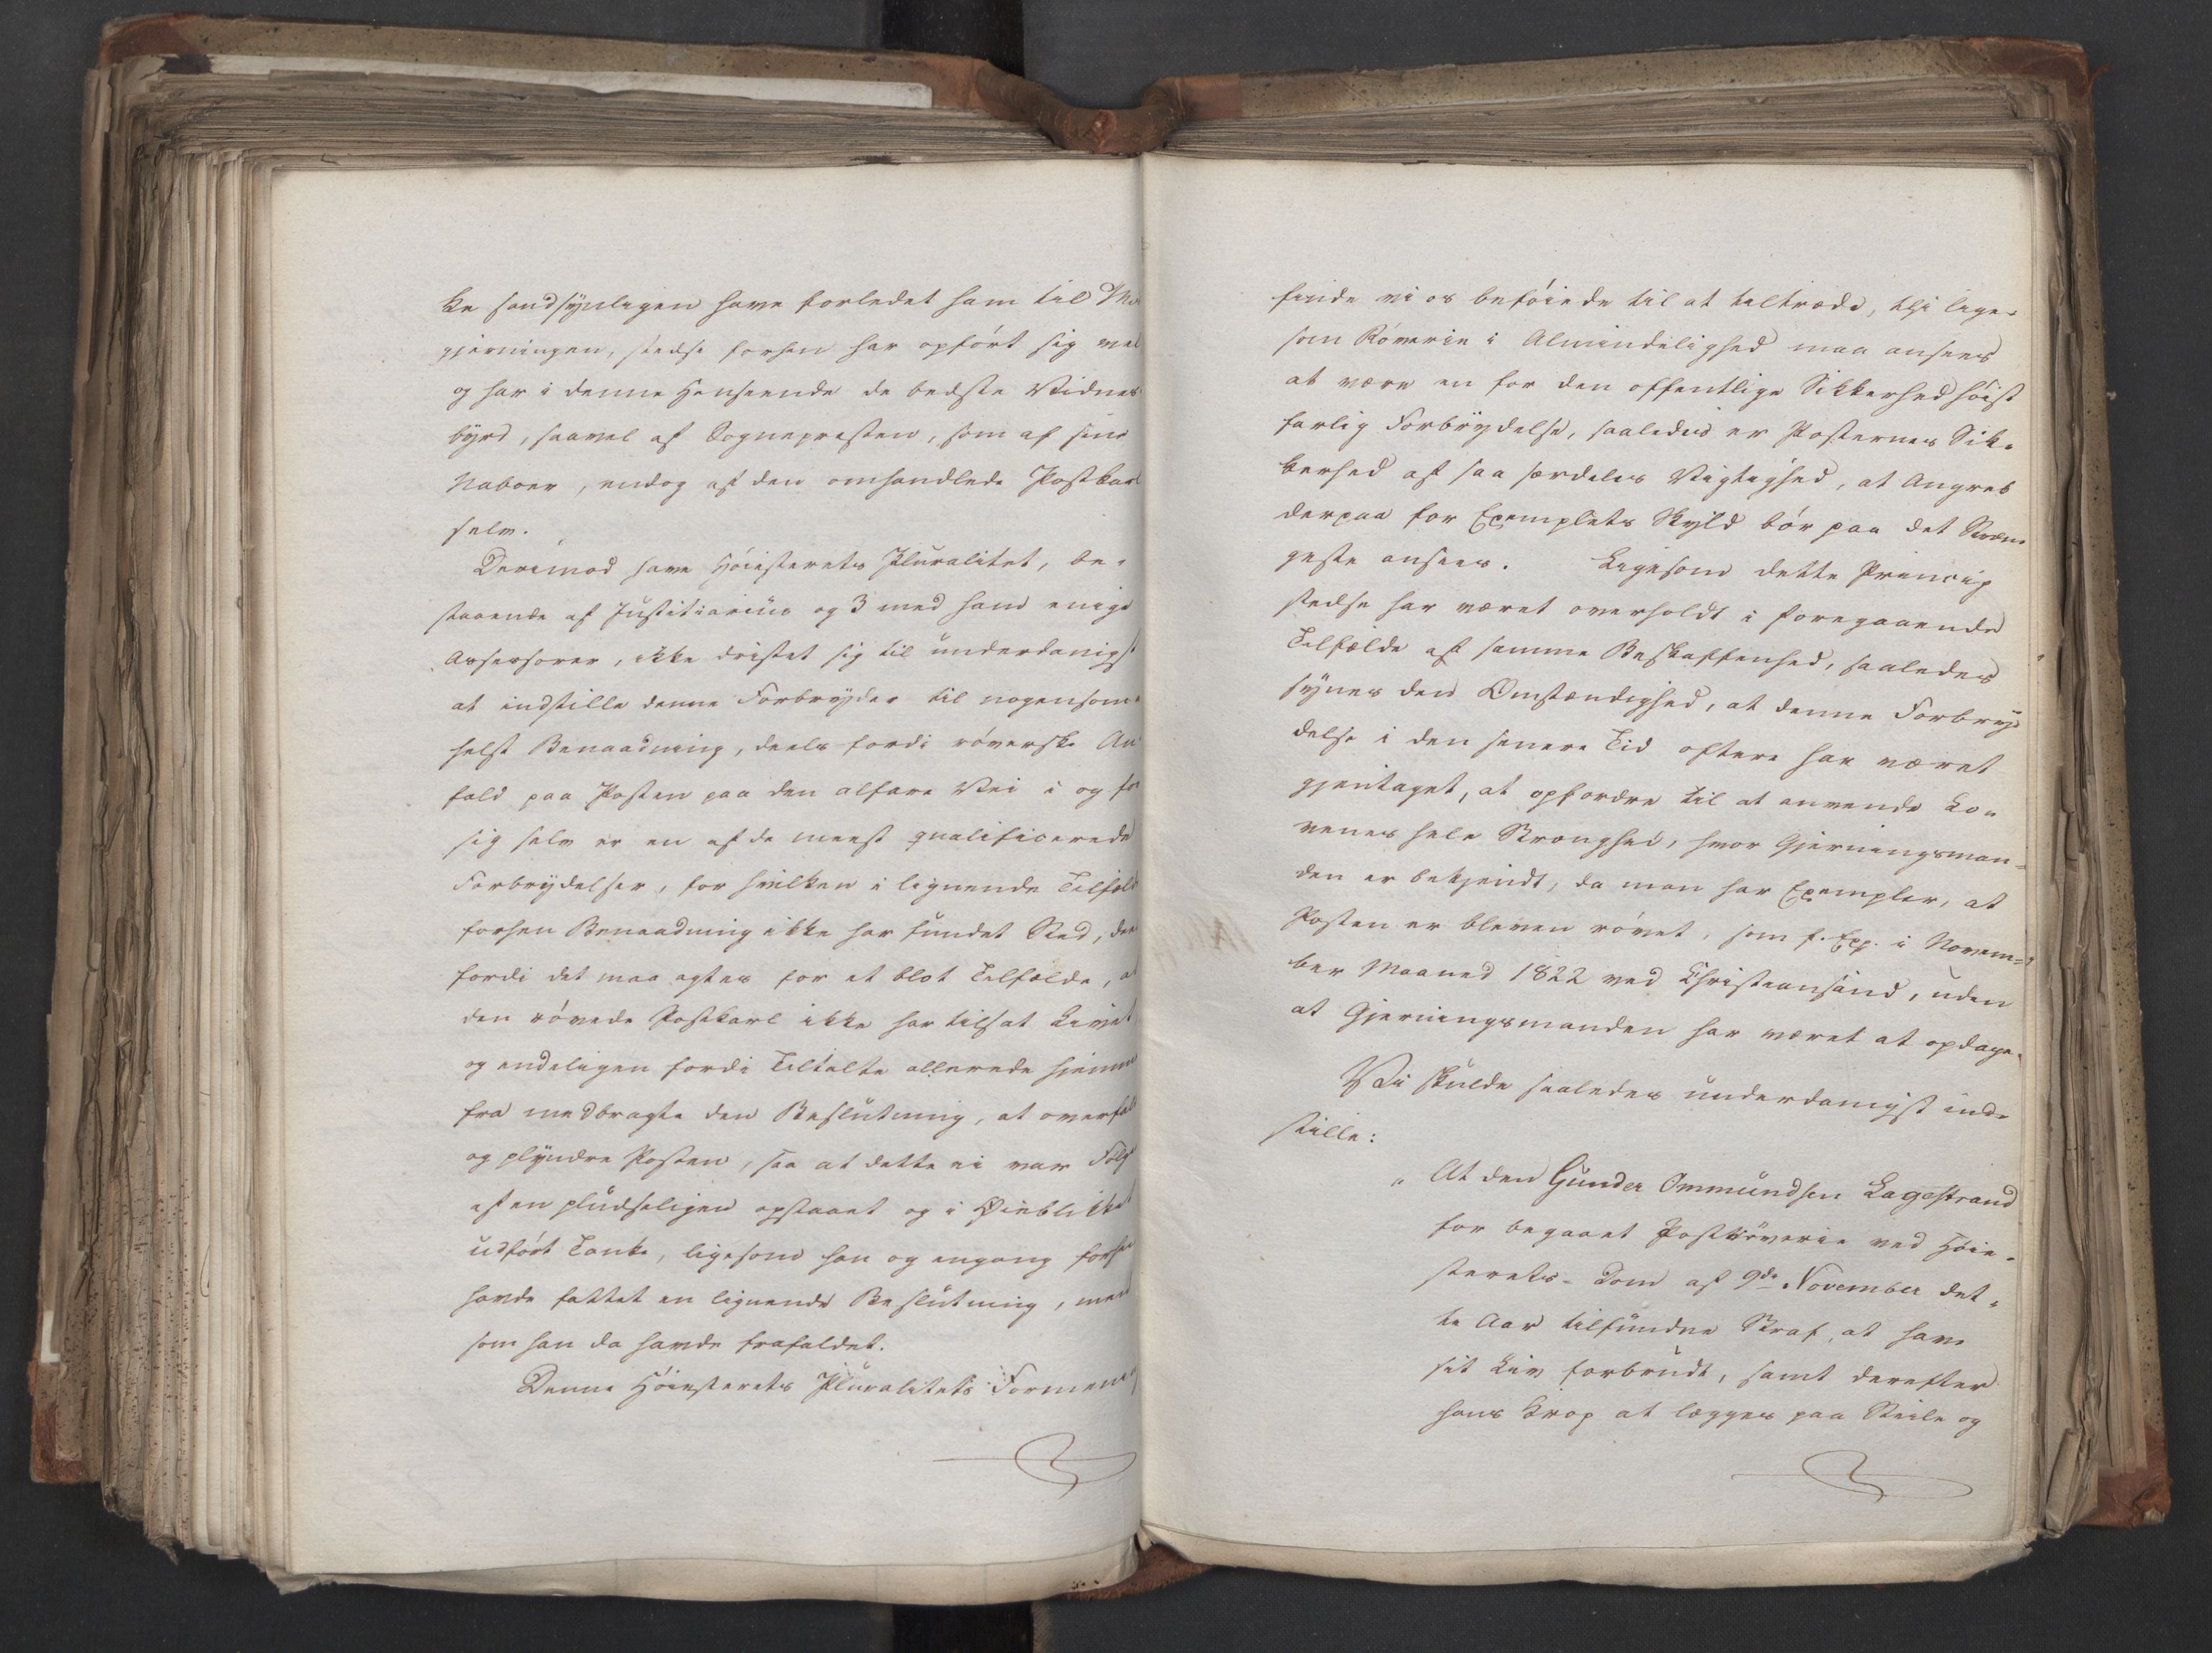 ke sandsynligen have forledet ham til
gjerningen, stedse forhen har opført sig vel
og har i denne Henseende de bedste Vidnes
byrd, saavel af Sognepresten, som af sine
Naboer, endog af den omhandlede Postkarl
selv.
Derimod have Høiesterets Pluralitet, be-
staaende af Justitiarius og 3 med ham enige
Assessorer, ikke dristet sig til underdanigst
at indstille denne Forbryder til nogensom-
helst Benaadning, deels fordi røverske An-
fald paa Posten paa den alfare Vei i og for
sig selv er en af de meest qualificerede
Forbrydelser, for hvilken i lignende Tilfælde
forhen Benaadning ikke har fundet Sted, deels
fordi det maa agtes for et blot Tilfælde, at
den røvede Postkarl ikke har tilsat Livet
og endeligen fordi Tiltalte allerede hjemme
fra medbragte den Beslutning, at overfalde
og plyndre Posten, saa at dette ei var Følge
af en pludseligen opstaaet og i Øieblikket
udført Tanke, ligesom han og engang forhen
havde fattet en lignende Beslutning, men
som han da havde frafaldet.
Denne Høiesterets Pluralitets Formening
finde vi os beføiede til at tiltræde, thi lige-
som Røverie i Almindelighed maa ansees
at være en for den offentlige Sikkerhed høist
farlig Forbrydelse, saaledes er Posternes Sik-
kerhed af saa særdeles Vigtighed, at Angreb
derpaa for Exemplets Skyld bør paa det Stræn-
geste ansees. Ligesom dette Princip
stedse har været overholdt i foregaaende
Tilfælde af samme Beskaffenhed, saaledes
synes den Omstændighed, at denne Forbry-
delse i den senere Tid oftere har været
gjentaget, at opfordre til at anvende Lo-
venes hele Strenghed, hvor Gjerningsman-
den er bekjendt, da man har Exempler, at
Posten er bleven røvet, som f. Ex. i Novem-
ber Maaned 1822 ved Christiansand, uden
at Gjerningsmanden har været at opdage.
Vi skulde saaledes underdanigst ind-
stille:
„At den Gunder Ommundsen Lagestrand
for begaaet Postrøverie ved Høie-
sterets-Dom af 9de November det-
te Aar tilfundne Straf, at have
sit Liv forbrudt, samt derefter
hans Krop at lægges paa Steile og